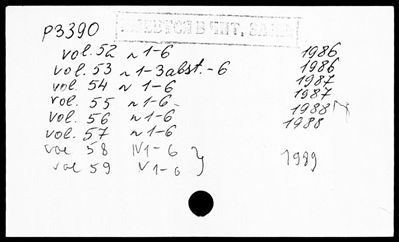 P3390
ИМЕЕТСЯ В ЧИТ. ЗАЛЕ
vol. 52 N 1-6 1986
vol. 53 N 1-3 abst. - 6 1986
vol. 54 N 1-6 1987
vol. 55 N 1-6 1987
vol. 56 N 1-6 1988
vol. 57 N 1-6 1988
vol 58 N 1-6
vol 59 N 1-6 } 1989